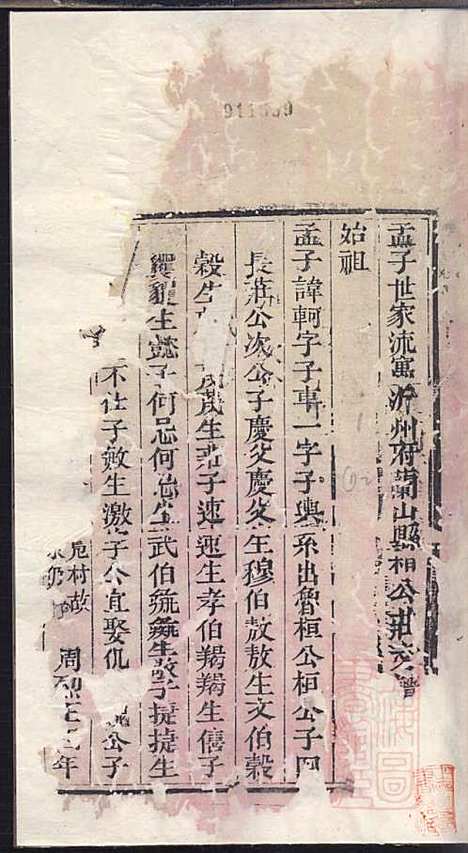 911639
孟子世家流寓沂州府蘭山縣相公莊支譜
始祖
孟子諱軻字子車一字子輿系出魯桓公桓公子四
長莊公次公子慶父慶父生穆伯敖敖生文伯穀
穀生 生獻子速速生孝伯羯羯生僖子
貜貜生懿子何忌何忌生武伯彘彘生敬子捷捷生
不仕子敏生激字公宜娶仉 公子
村故 周烈王 年